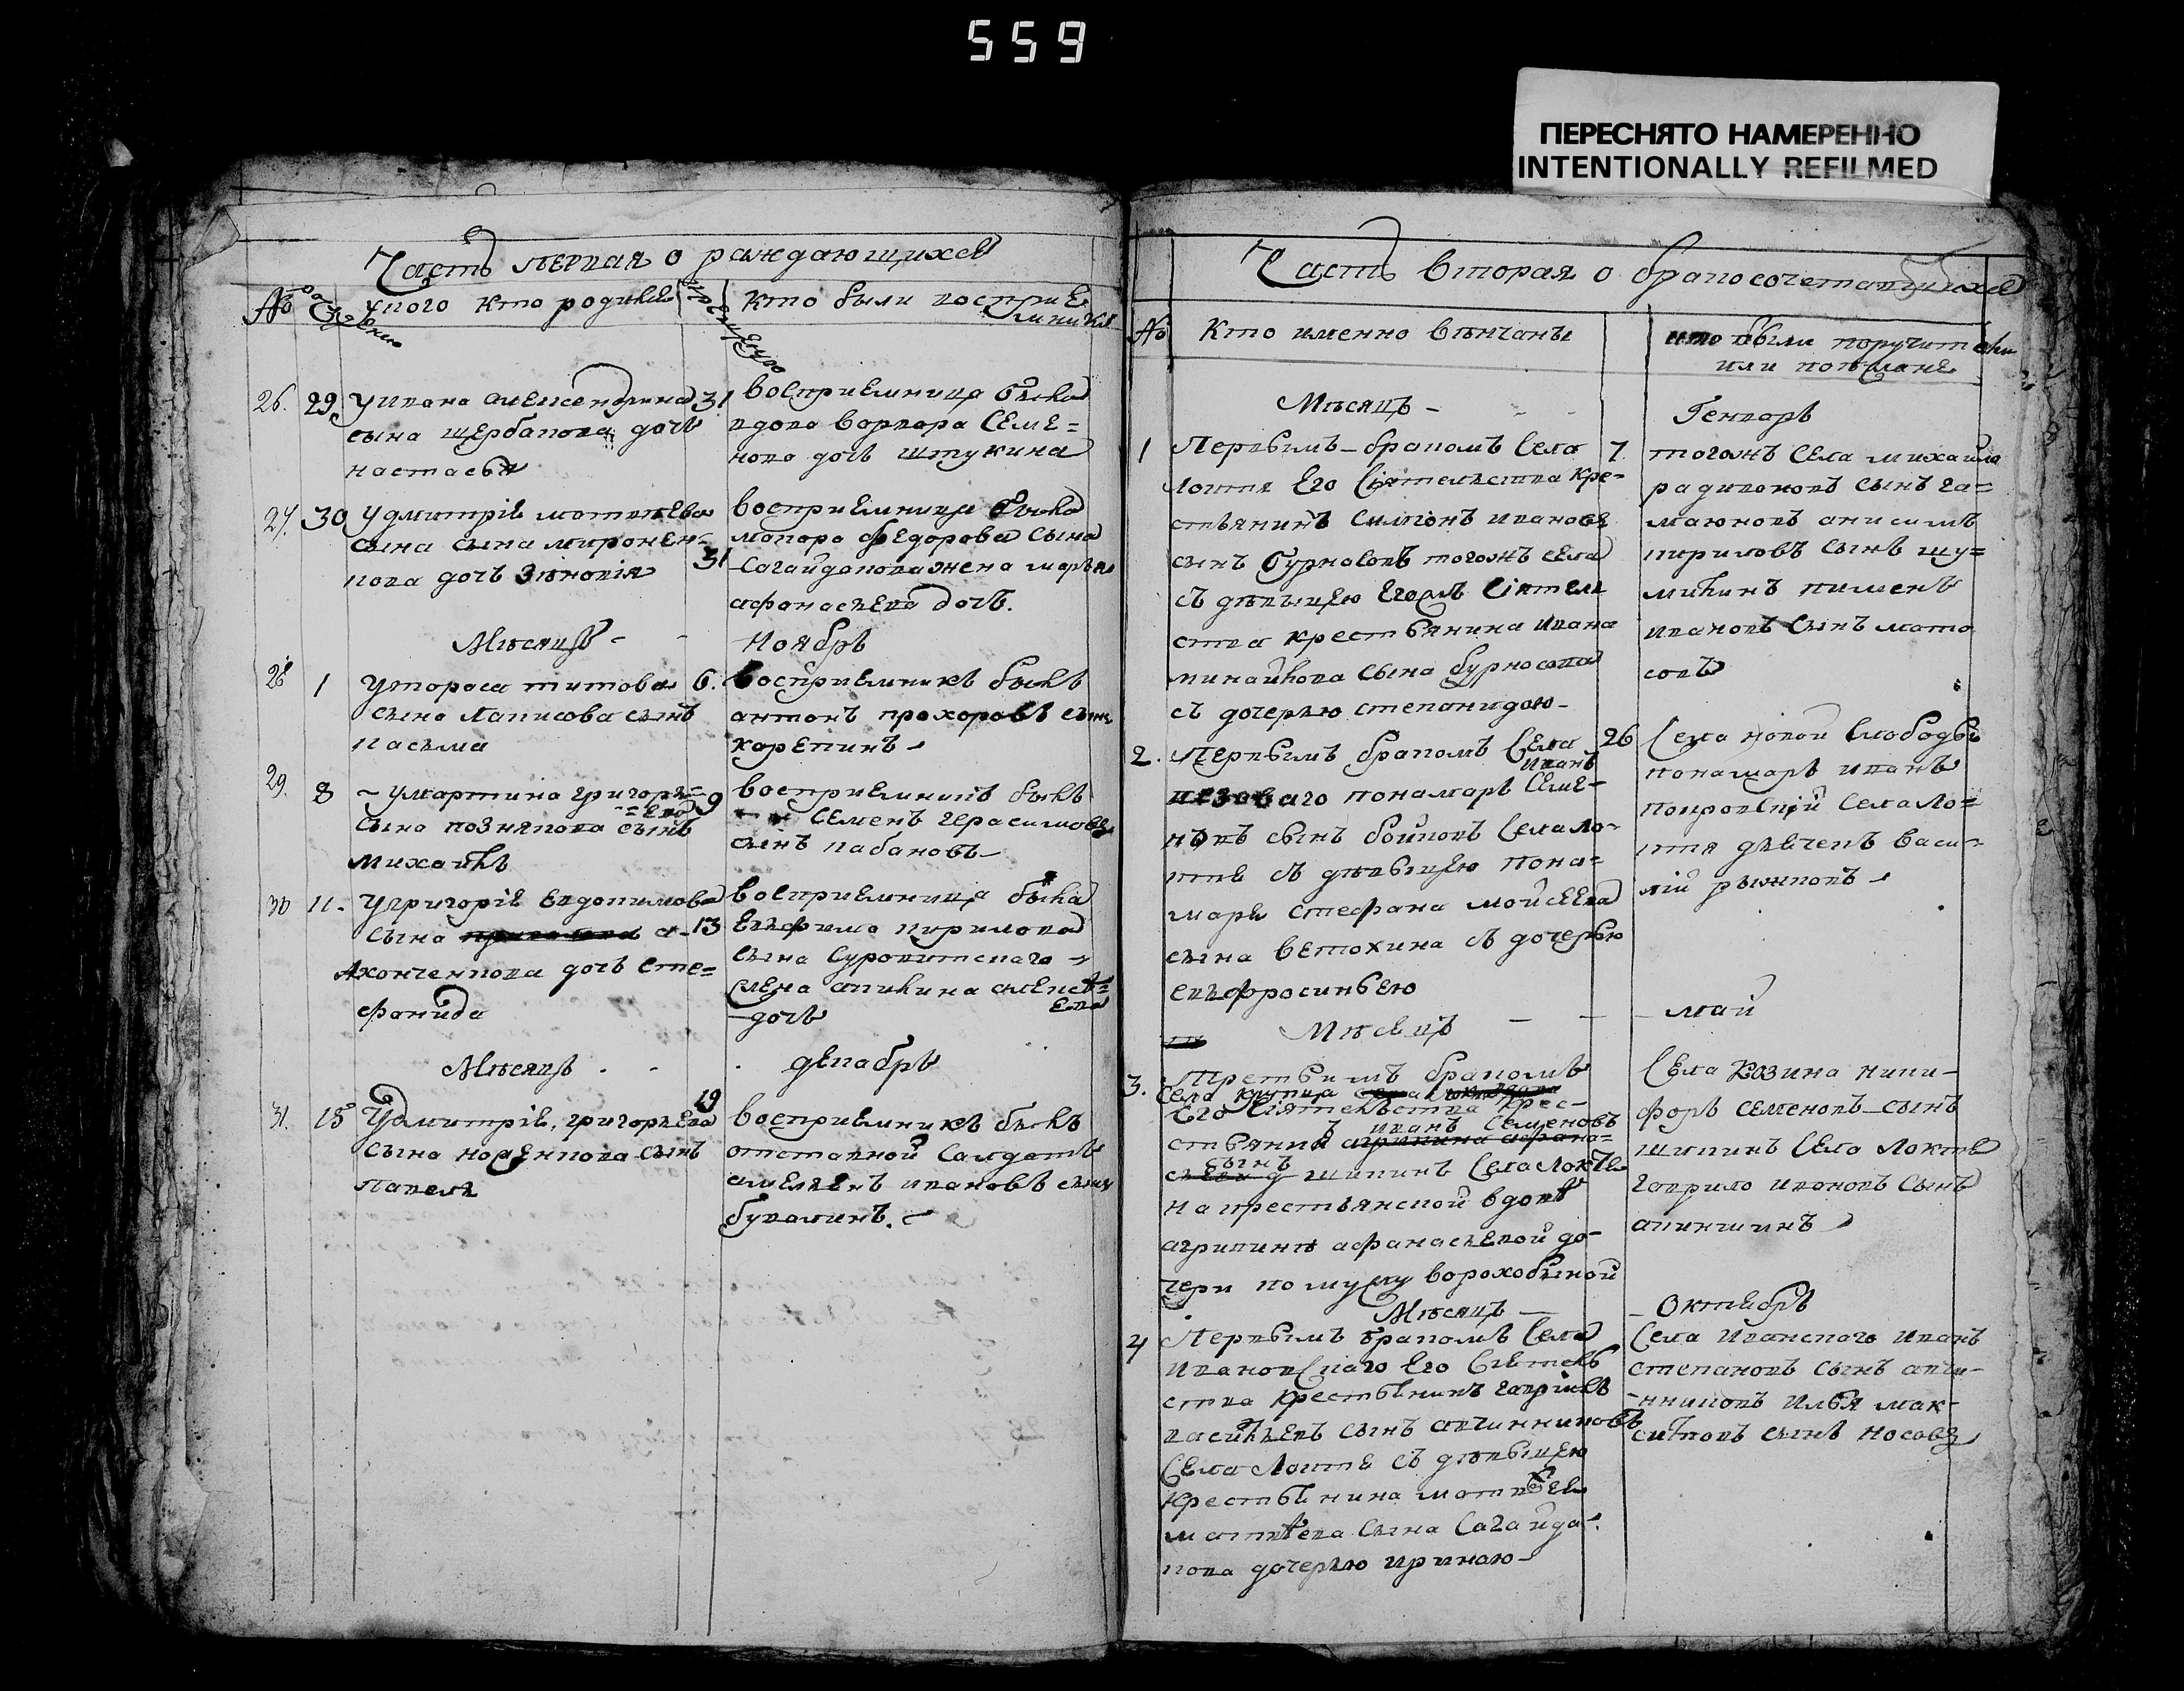 559
ПЕРЕСНЯТО НАМЕРЕННО
INTENTIONALLY REFILMED
Часть первая о раждающихся
№
рождение
у кого кто родился
крещение
кто были восприе
мники
26. 29. у ивана александрина
сына щербакова дочь
настасья
31 восприемница была
вдова варвара Семе=
нова дочь штукина
27. 30 у дмитрiя матвѣева
сына сына миронен-
кова дочь Зѣновiя
31
восприемница была
макара федорова сына
Сагайдакова жена марья
афонасьева дочь.
Мѣсяцъ - - Ноябрь
28 1 у тараса титова
сына Лаписова сынъ
касьма
6. восприемникъ былъ
антонъ прохоровъ сынъ
карепинъ
29. 8 у мартина григорье=
=ва
сына познякова сынъ
михаилъ
9 восприемникъ былъ
Семенъ герасимовъ
сынъ кабановъ
30 11. у григорiя евдокимова
сына а-
хонченкова дочь сте=
фанида
13 восприемница была
евфима кирилова
сына Суровитскаго
елена аникина алексѣ=
ева
дочь
Мѣсяцъ - - декабрь
31. 15 у дмитрiя григорьева
сына норенкова сынъ
павелъ
19 восприемникъ былъ
отставной Салдатъ
емельянъ ивановъ сынъ
букалинъ.
Часть вторая о бракосочетавшихся
55
№ Кто именно вѣнчаны
кто были поручители
или поѣзжане
Мѣсяцъ - - - Генварь
1 Первымъ бракомъ Села
Локтя Его Сiятельства кре-
стьянинъ Симѣонъ ивановъ
сынъ бурнасовъ тогожъ села
съ дѣвицею Егожъ Сiятель
ства крестьянина ивана
михайлова сына бурносова
съ дочерью степанидою
7. тогожъ Села михайла
радивоновъ сынъ га=
маюновъ анисимъ
кириловъ сынъ шу=
милинъ пименъ
ивановъ сынъ мато
совъ
2. Первымъ бракомъ Села
иванъ
понамарь Семе-
новъ сынъ бойковъ Села Ло-
ктя съ дѣвицею пона=
маря стефана мойсеева
сына ветохина съ дочерью
евфросиньею
26 Села новой Слободы
понамарь иванъ
покровскiй Села Ло=
ктя дьячекъ Васи-
лiй рыжковъ
Мѣсяцъ - - - май
3. Третьимъ бракомъ
Села
Его Сiятельства крес-
иванъ Семеновъ
стьянинъ
сынъ
шипинъ Села Локтя
на крестьянской вдовѣ
агрипинѣ афанасьевой до-
чери по мужу ворохобиной
Села Козина ники-
форъ семеновъ сынъ
шипинъ Села Локтя
гаврило ивановъ сынъ
акиншинъ
Мѣсяцъ - - Октябрь
4 Первымъ бракомъ Села
ивановскаго Его Сiятель
ства крестьянинъ гаврiилъ
васильевъ сынъ авчинниковъ
Села Локтя съ дѣвицею
крестьянина матвѣя
матвѣева сына Сагайда-
кова дочерью ириною
Села Иванскаго иванъ
степановъ сынъ авчи-
нниковъ илья мак-
симовъ сынъ Носовъ